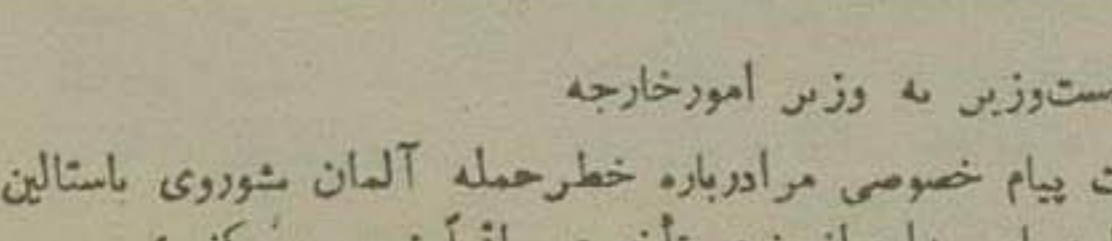 ست‌وزیر به وزیر امورخارجه
ت پیام خصوصی مرادرباره خطرحمله آلمان بشوروی باستالین